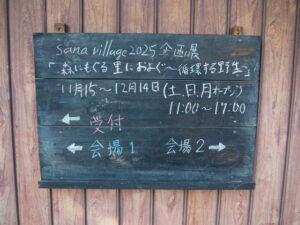 Sana village2025 企画展
「森にもぐる 里におよぐ〜循環する野生〜」
11月15〜12月14日(土、日、月オープン)
11:00〜17:00
← 受付
← 会場1 会場2 →